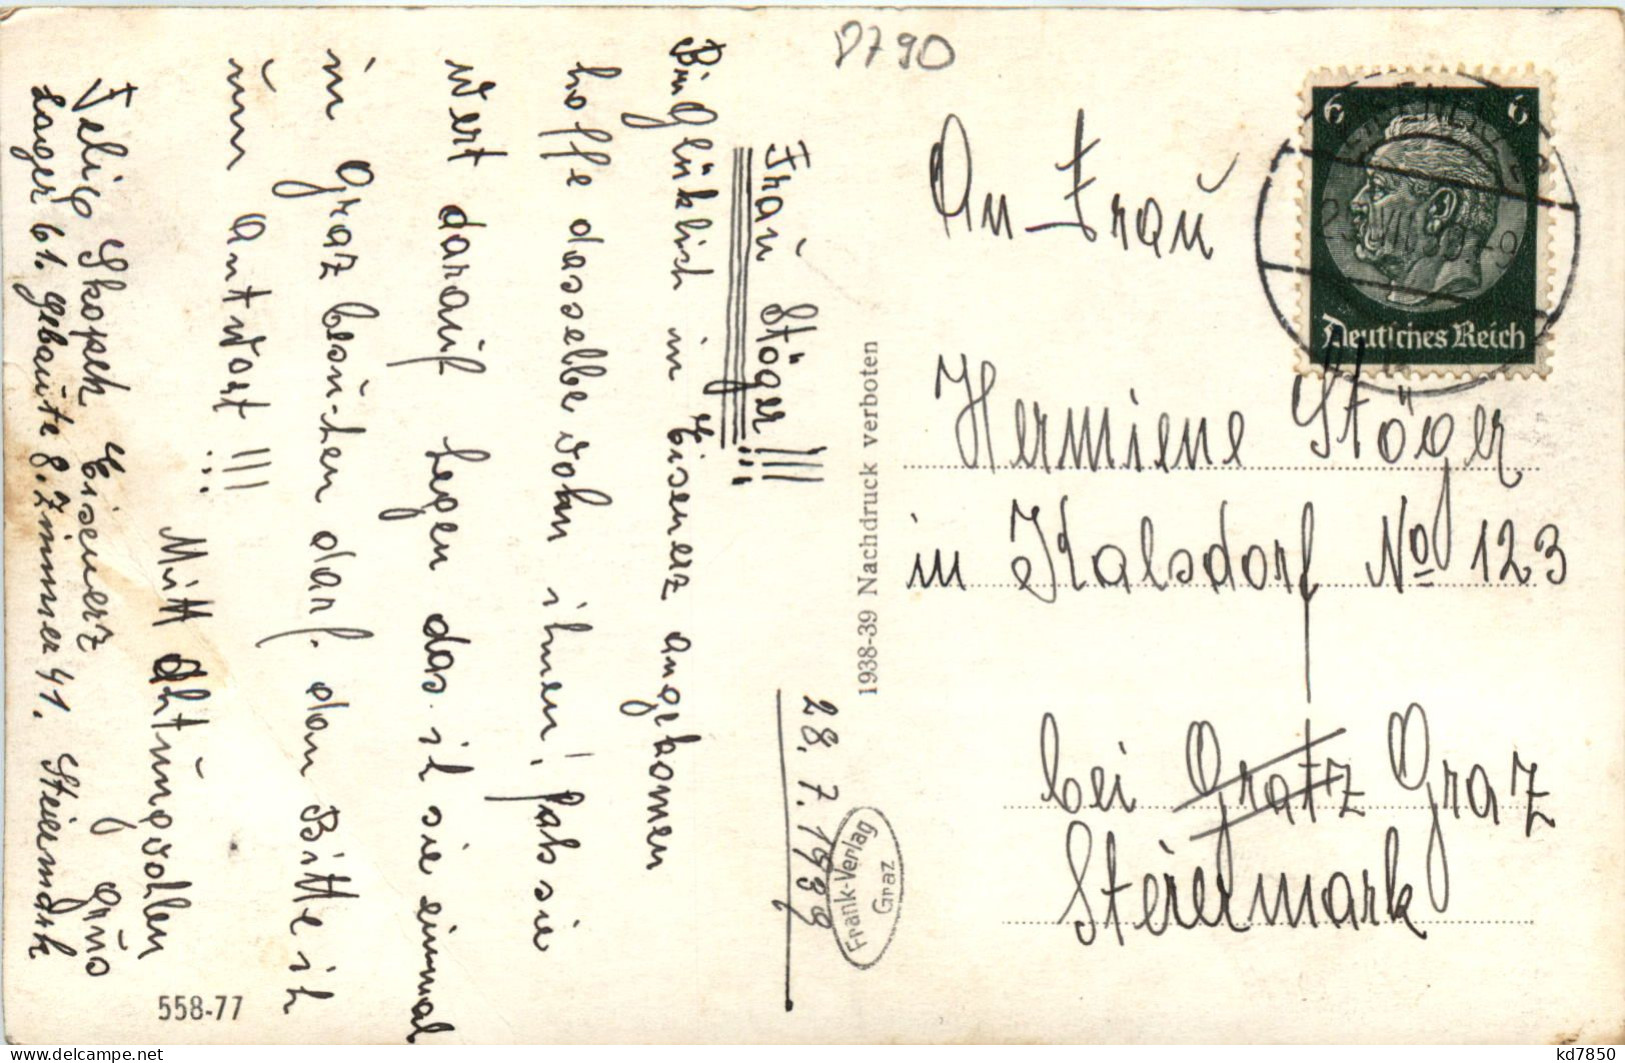 P790
28. 7. 1939
Frau Stöger!!!
Bin glüklich in Eisenerz angekomen
hoffe dasselbe vohn ihnen! fals sie
wert darauf legen das ih sie einmal
in Graz besuchen darf. dan Bitte ih
um antwort!!!
Mitt Ahtungvohlen
grüs
Felix Skopek Eisenerz
Lager 61. gebaute 8. Zimmer 41. Steiermark
558-77
1938-39 Nachdruck verboten
Frank-Verlag
Graz
6 6
Deutsches Reich
An Frau
Hermiene Stöger
in Kalsdorf No 123
bei Gratz Graz
Steiermark
kd7850